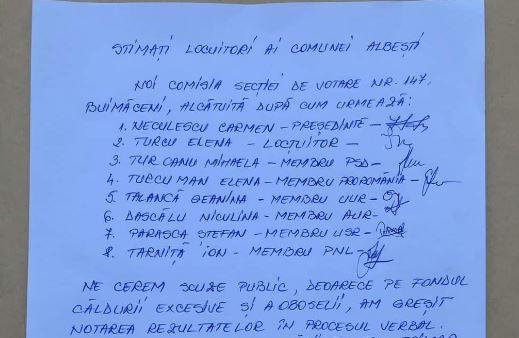 STIMAȚI LOCUITORI AI COMUNEI ALBEȘTI
NOI COMISIA SECȚIEI DE VOTARE NR. 147,
BUIMĂCENI, ALCĂTUITĂ DUPĂ CUM URMEAZĂ:
1. NECULESCU CARMEN – PREȘEDINTE –
2. TURCU ELENA – LOCȚIITOR –
3. TURCANU MIHAELA – MEMBRU PSD –
4. TURCUMAN ELENA – MEMBRU PROROMÂNIA –
5. TALANCĂ GEANINA – MEMBRU UUR –
6. DASCĂLU NICULINA – MEMBRU AUR –
7. PARASCA ȘTEFAN – MEMBRU USR –
8. TARNIȚĂ ION – MEMBRU PNL –
NE CEREM SCUZE PUBLIC, DEOARECE PE FONDUL
CĂLDURII EXCESIVE ȘI A OBOSELII, AM GREȘIT
NOTAREA REZULTATELOR ÎN PROCESUL VERBAL.